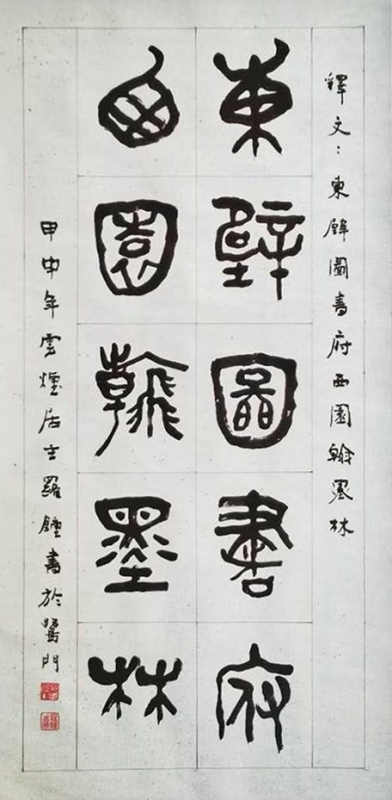 釋文：東壁圖書府西園翰墨林
東壁圖書府
西園翰墨林
甲申年雲煙居士羅鍾書於鷺門